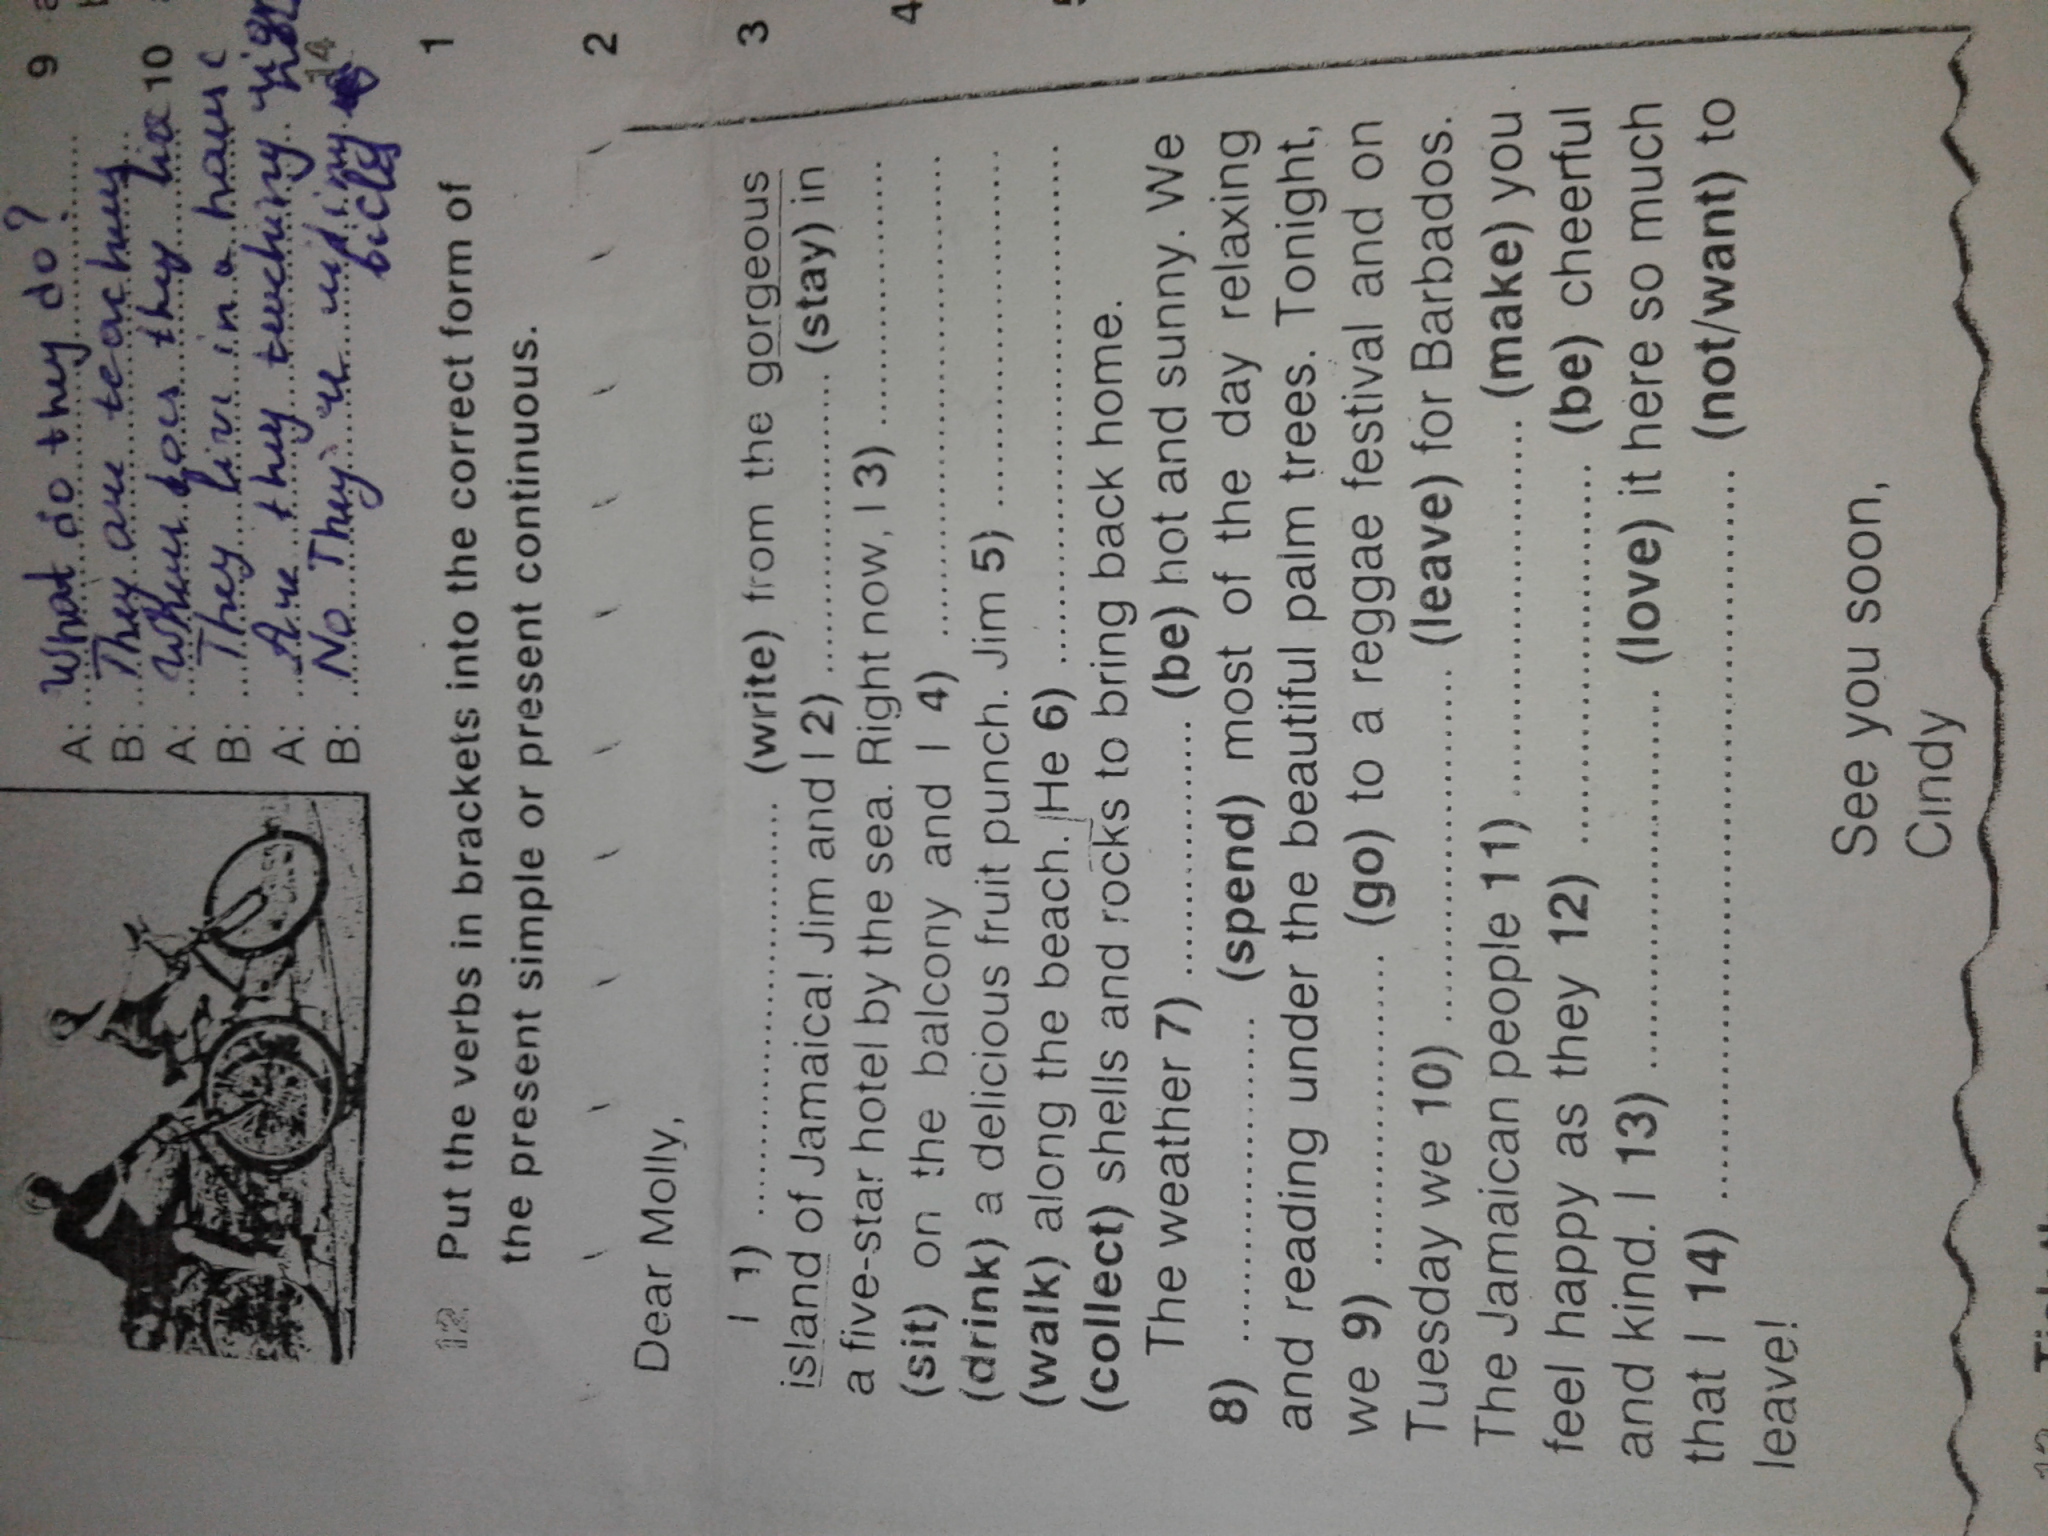 9
A: What do they do?
B: They are teachers
A: Where does they
10
B: They live in a house
A: Are they teaching
B: No They're
14
1
12 Put the verbs in brackets into the correct form of
the present simple or present continuous.
2
Dear Molly,
3
I 1) .............................. (write) from the gorgeous
island of Jamaica! Jim and I 2) .................... (stay) in
4
a five-star hotel by the sea. Right now, I 3) ..................
(sit) on the balcony and I 4) ................................
(drink) a delicious fruit punch. Jim 5) ........................
(walk) along the beach. He 6) ..................................
(collect) shells and rocks to bring back home.
The weather 7) .................. (be) hot and sunny. We
8) ...................... (spend) most of the day relaxing
and reading under the beautiful palm trees. Tonight,
we 9) ..................... (go) to a reggae festival and on
Tuesday we 10) ....................... (leave) for Barbados.
The Jamaican people 11) ......................... (make) you
feel happy as they 12) ......................... (be) cheerful
and kind. I 13) ......................... (love) it here so much
that I 14) ................................................ (not/want) to
leave!
See you soon,
Cindy